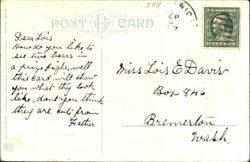 POST CARD
Dear Lois
How do you like to
see two bears in
a prize fight, well
this card will show
you what they look
like, don't you think
they are cut from
Father
Miss Lois E Davis
Box 846
Bremerton
Wash.